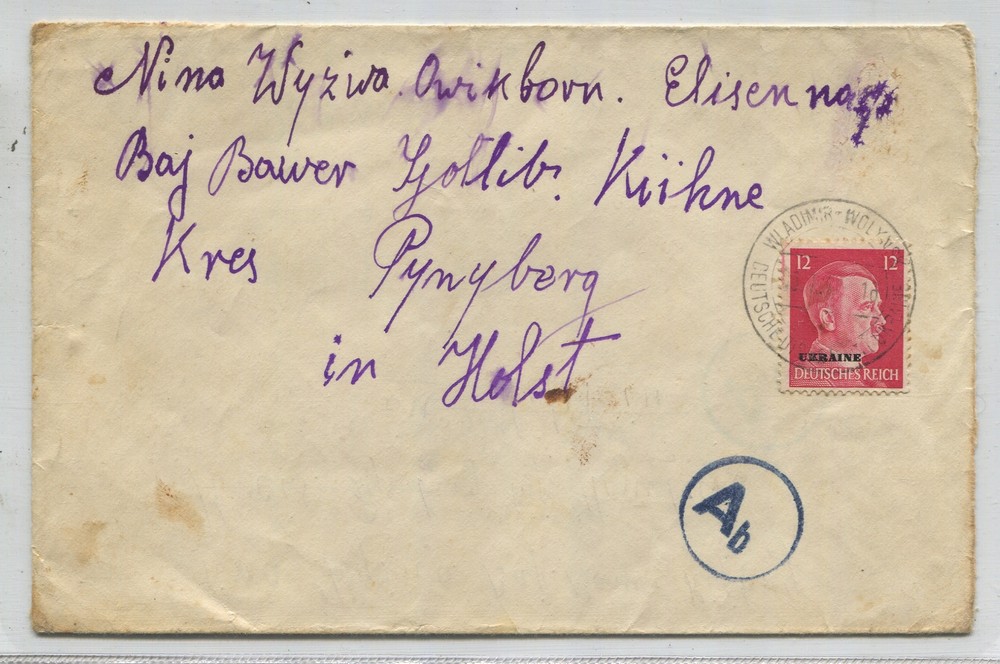 Nina Wyziwa. Owikborn. Elisenna
Baj Bawer Gottlib. Kühne
Kres Pynyberg
in Holst
WLADIMIR-WOLYNSK
DEUTSCHE
12 12
UKRAINE
DEUTSCHES REICH
Ab